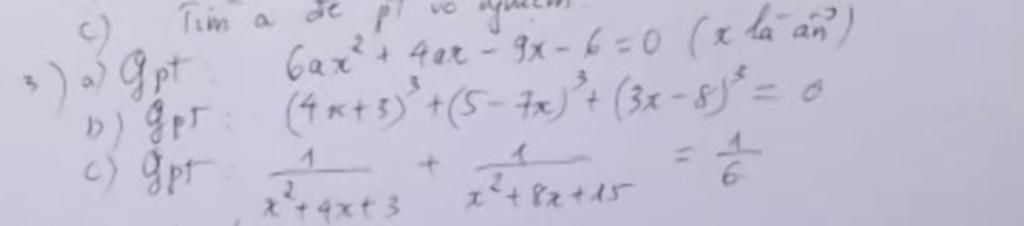 c) Tìm a để pt vô nghiệm
3) a) Gpt: 6ax² + 4ax - 9x - 6 = 0 (x là ẩn)
b) Gpt: (4x+3)³ + (5-7x)³ + (3x-8)³ = 0
c) Gpt: 1/(x²+4x+3) + 1/(x²+8x+15) = 1/6